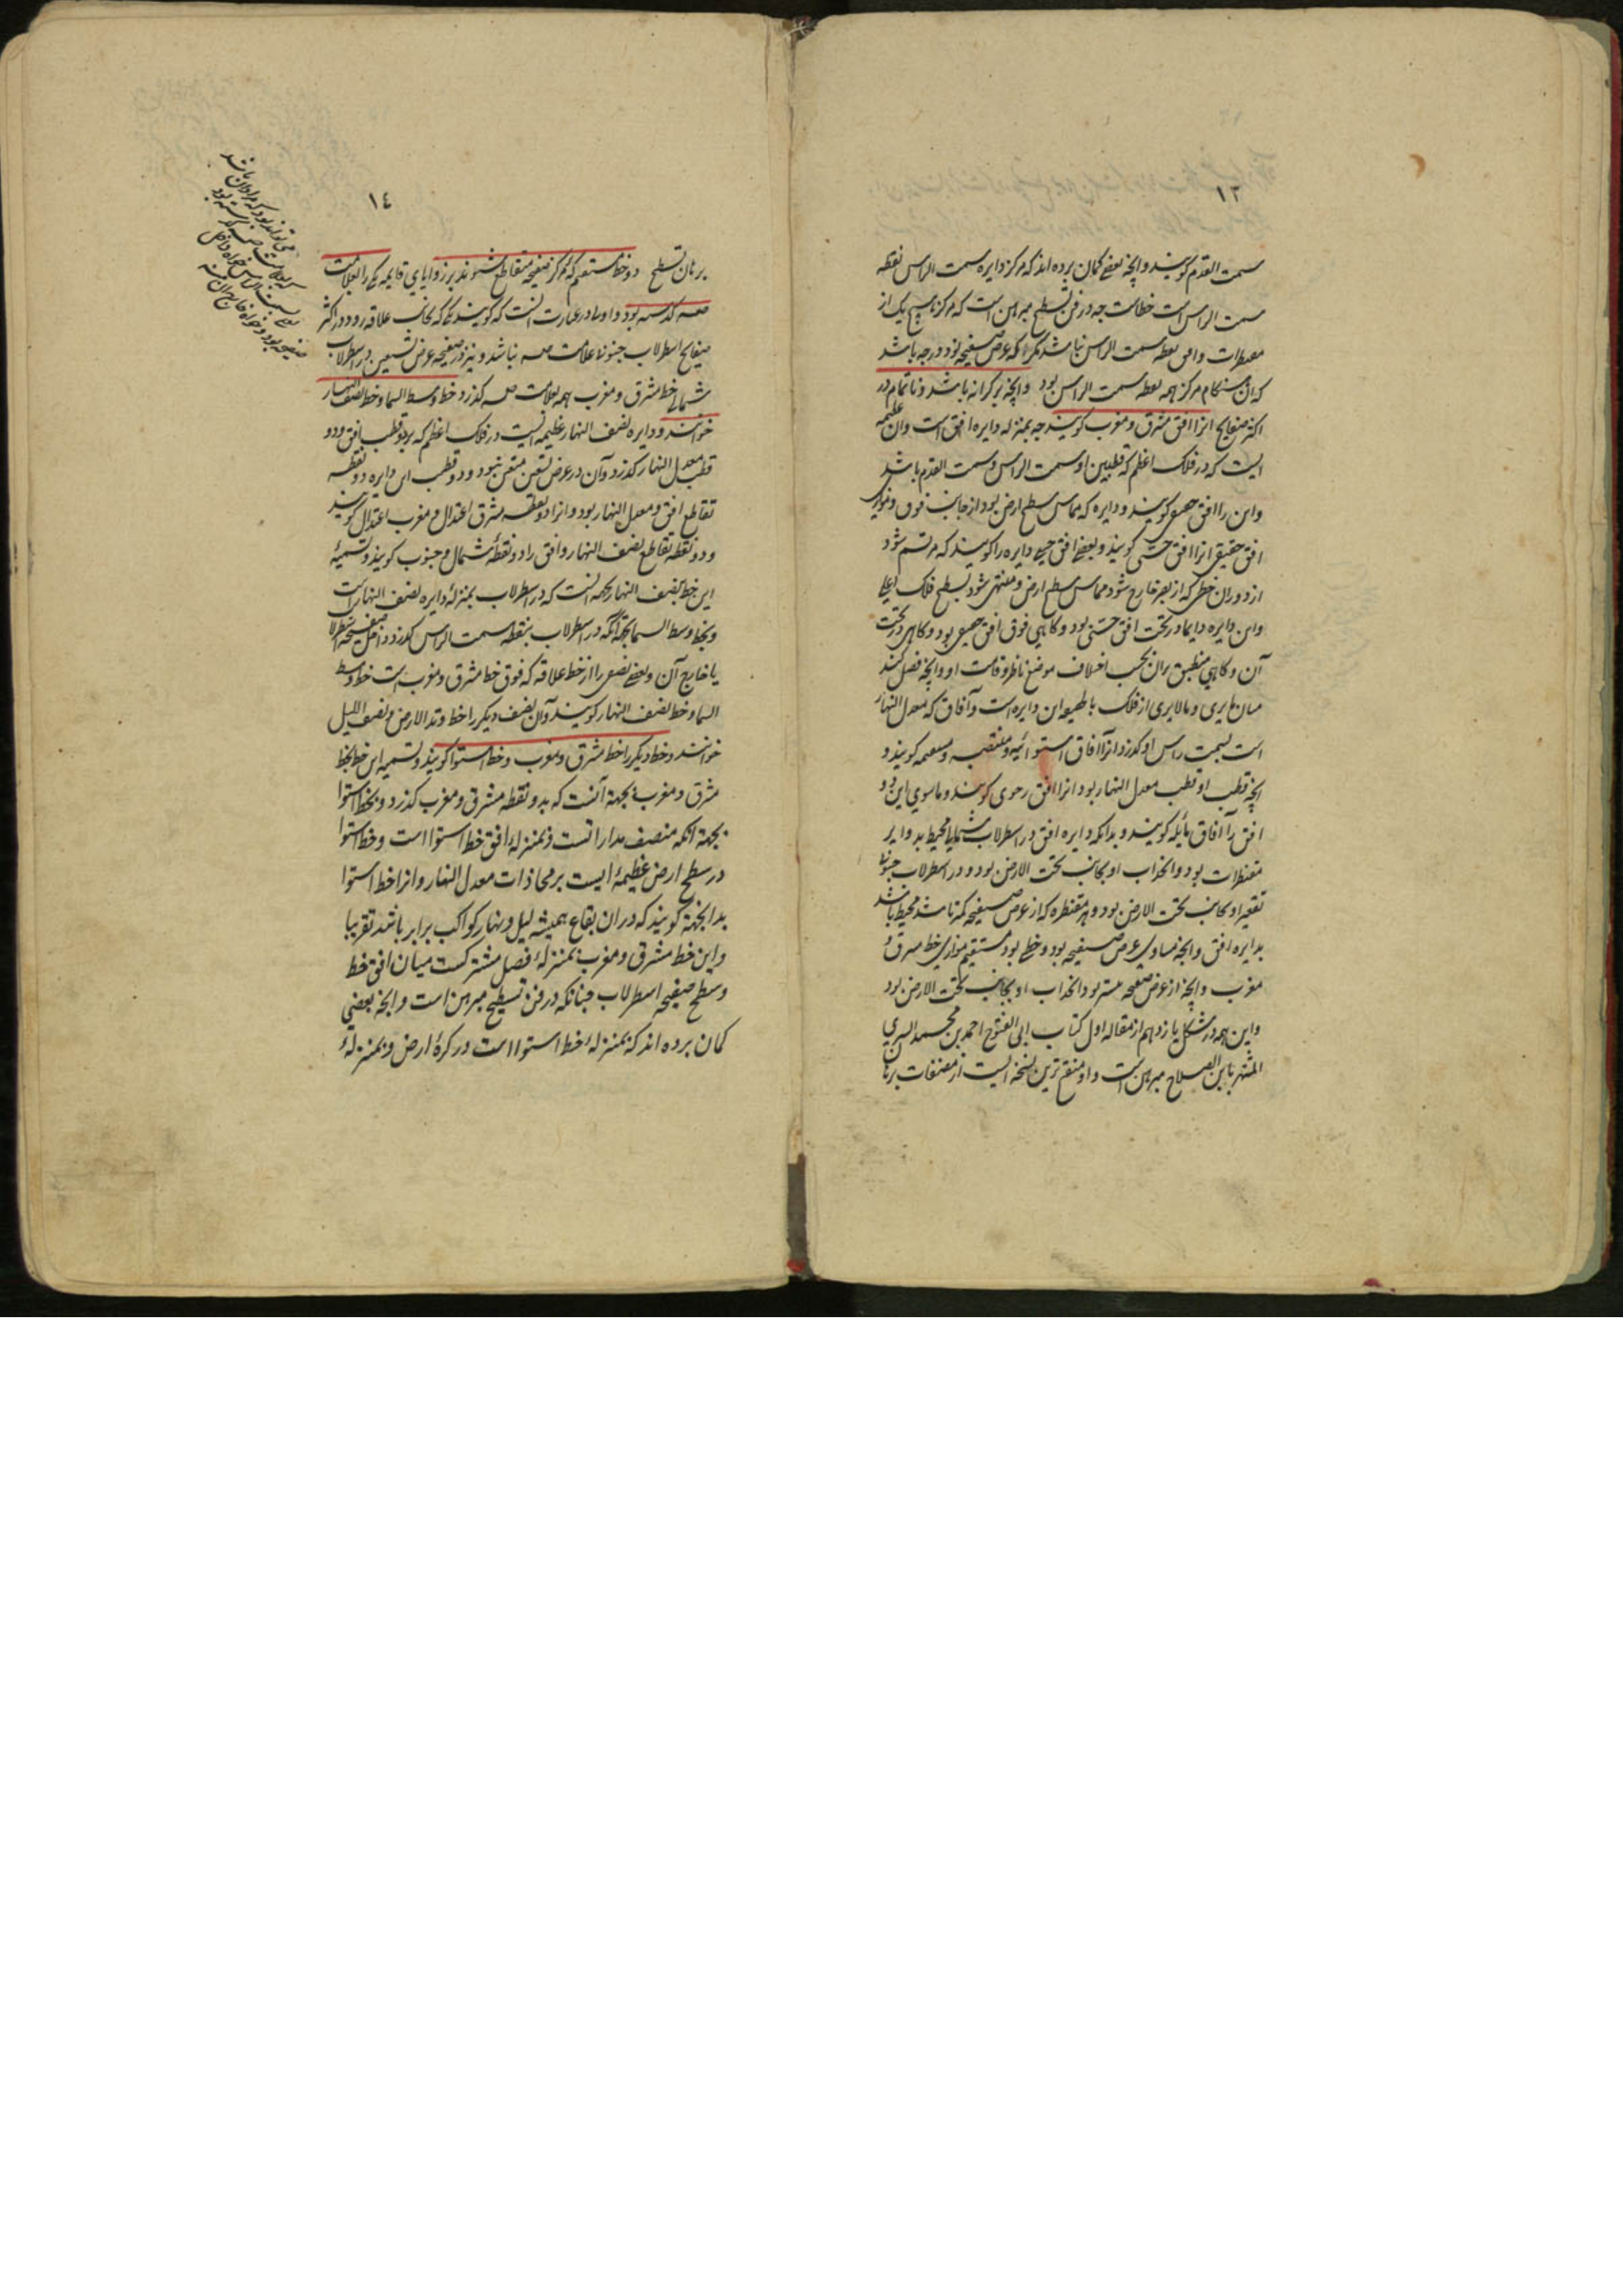 ١٣
سمت القدم گویند و آنچه بعضی گمان برده اند که مرکز دایره سمت الراس نقطه
سمت الراس است خطاست چه در فن تسطیح مبرهن است که مرکز هیچ یک از
مقنطرات و افق نقطه سمت الراس نباشد مگر آنکه عرض صفیحه نود درجه باشد
که آن هنگام مرکز همه نقطه سمت الراس بود و آنچه بر کرانه باشد و ناتمام در
اکثر صفایح انرا افق مشرق و مغرب گویند چه بمنزله دایره افق است و آن عظیمه
ایست که در فلک اعظم که قطبین او سمت الراس و سمت القدم باشد
و این را افق گویند و دایره که مماس سطح ارض بود از جانب فوق و موازی
افق حقیقی انرا افق حسی گویند و بعضی افق حسی دایره را گویند که مرتسم شود
از دوران خطی که از بصر خارج شود مماس سطح ارض و منتهی شود بسطح فلک اعلی
و این دایره دایما در تحت افق حسی بود و کاهی فوق افق بود و کاهی در تحت
آن و کاهی منطبق بران بحسب اختلاف موضع ناظر و قامت او و آنچه فصل کند
میان مایری و مالایری از فلک این دایره است و آفاق که معدل النهار
است بسمت راس او گذرد انرا آفاق استوائیه و منتصبه و گویند و
آنچه قطب او قطب معدل النهار بود انرا افق رحوی گویند و ماسوی این دو
افق را آفاق مایله گویند و بدانکه دایره افق در اسطرلاب شمالی محیط بدوایر
مقنطرات بود و انحداب او بجانب تحت الارض بود و در اسطرلاب جنوبی
تقعیر او بجانب تحت الارض بود و هر مقنطره که از عرض صفیحه کمتر باشد محیط باشد
بدایره افق و آنچه مساوی عرض صفیحه بود و خطی بود مستقیم موازی خط مشرق و
مغرب و آنچه از عرض صفیحه بیشتر بود انحداب او بجانب تحت الارض بود
و این همه در شکل یازدهم از مقاله اول کتاب ابی الفتوح احمد بن محمد السری
المشتهر بابن الصلاح مبرهن است و او متقن ترین نسخه ایست از مصنفات برهان
١٤
برهان تسطیح دو خط مستقیم که بمرکز صفیحه متقاطع شوند بر زوایای قایمه یکی را بعلامت
گذشته بود و در عبارت آنست که گویند یکی که بجانب علاقه رود و در اکثر
صفایح اسطرلاب جنوبی علامت نباشد و نیز در صفیحه عرض تسعین در اسطرلاب
شمالی خط مشرق و مغرب همه بعلامت گذرد خط وسط السما و خط نصف النهار
خوانند و دایره نصف النهار عظیمه ایست در فلک اعظم که بر دو قطب افق و دو
قطب معدل النهار گذرد و آن در عرض تسعین متعین نبود و دو قطب این دایره دو نقطه
تقاطع افق و معدل النهار بود و انرا دو نقطه مشرق اعتدال و مغرب اعتدال گویند
و دو نقطه تقاطع نصف النهار و افق را دو نقطه شمال و جنوب گویند و تسمیهٔ
این خط بنصف النهار بجهة آنست که در اسطرلاب بمنزلهٔ دایره نصف النهار است
و بخط وسط السما بجهة آنکه در اسطرلاب بنقطه سمت الراس گذرد داخل صفیحه اسطرلاب
یا خارج آن و بعضی نصفی را از خط علاقه که فوق خط مشرق و مغرب است خط وسط
السما و خط نصف النهار گویند و آن نصف دیگر را خط وتد الارض و نصف اللیل
خوانند و خط دیگر را خط مشرق و مغرب و خط استوا گویند و تسمیه این خط بخط
مشرق و مغرب بجهة آنست که بدو نقطه مشرق و مغرب گذرد و بخط استوا
بجهة آنکه منصف مدارات است و بمنزله افق خط استوا است و خط استوا
در سطح ارض عظیمهٔ ایست بر محاذات معدل النهار و انرا خط استوا
بدانجهة گویند که در ان بقاع همیشه لیل و نهار کواکب برابر باشد تقریبا
و این خط مشرق و مغرب بمنزلهٔ فصل مشترکست میان افق خط
و سطح صفیحه اسطرلاب چنانکه در فن تسطیح مبرهن است و آنچه بعضی
گمان برده اند که بمنزلهٔ خط استوا است در کرهٔ ارض و بمنزلهٔ